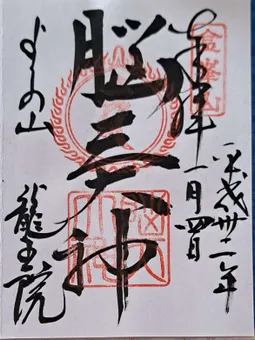 金峯山
平成卅二年
奉拝
一月四日
脳天大神
よしの山
龍王院